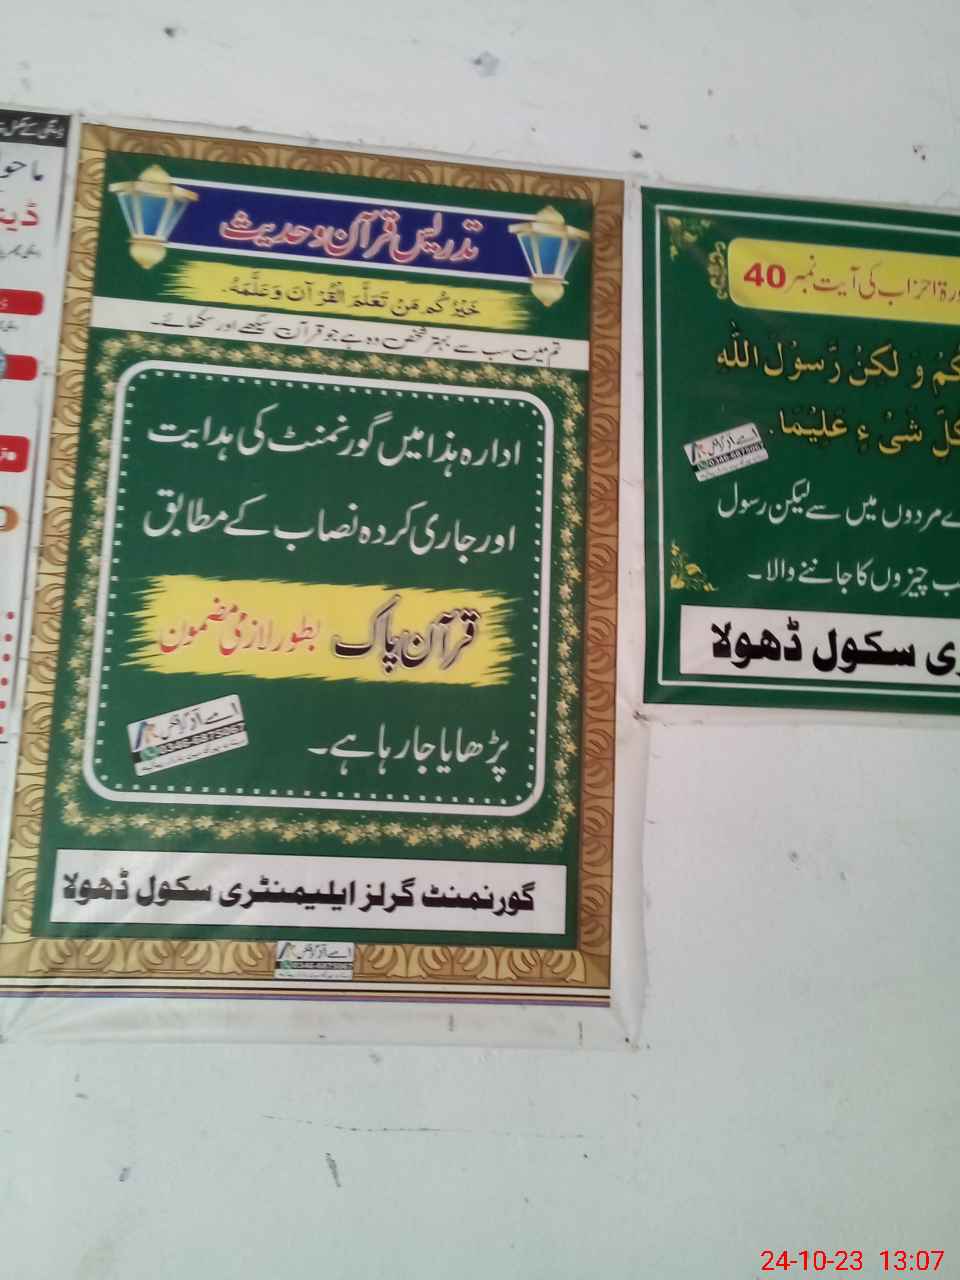 تدریس قرآن و حدیث
خَيْرُ كُم مَنْ تَعَلَّمَ الْقُرْآنَ وَعَلَّمَهُ.
تم میں سب سے بہتر شخص وہ ہے جو قرآن سیکھے اور سکھائے۔
ادارہ ہذا میں گورنمنٹ کی ہدایت
اور جاری کردہ نصاب کے مطابق
قرآن پاک بطور لازمی مضمون
پڑھایا جا رہا ہے۔
0346-6875067
گورنمنٹ گرلز ایلیمنٹری سکول ڈھولا
0346-6875067
احزاب کی آیت نمبر 40
وَ لٰكِنْ رَّسُوْلَ اللّٰهِ
شَیْءٍ عَلِیْمًا.
0346-6875067
مردوں میں سے لیکن رسول
چیزوں کا جاننے والا۔
سکول ڈھولا
24-10-23 13:07